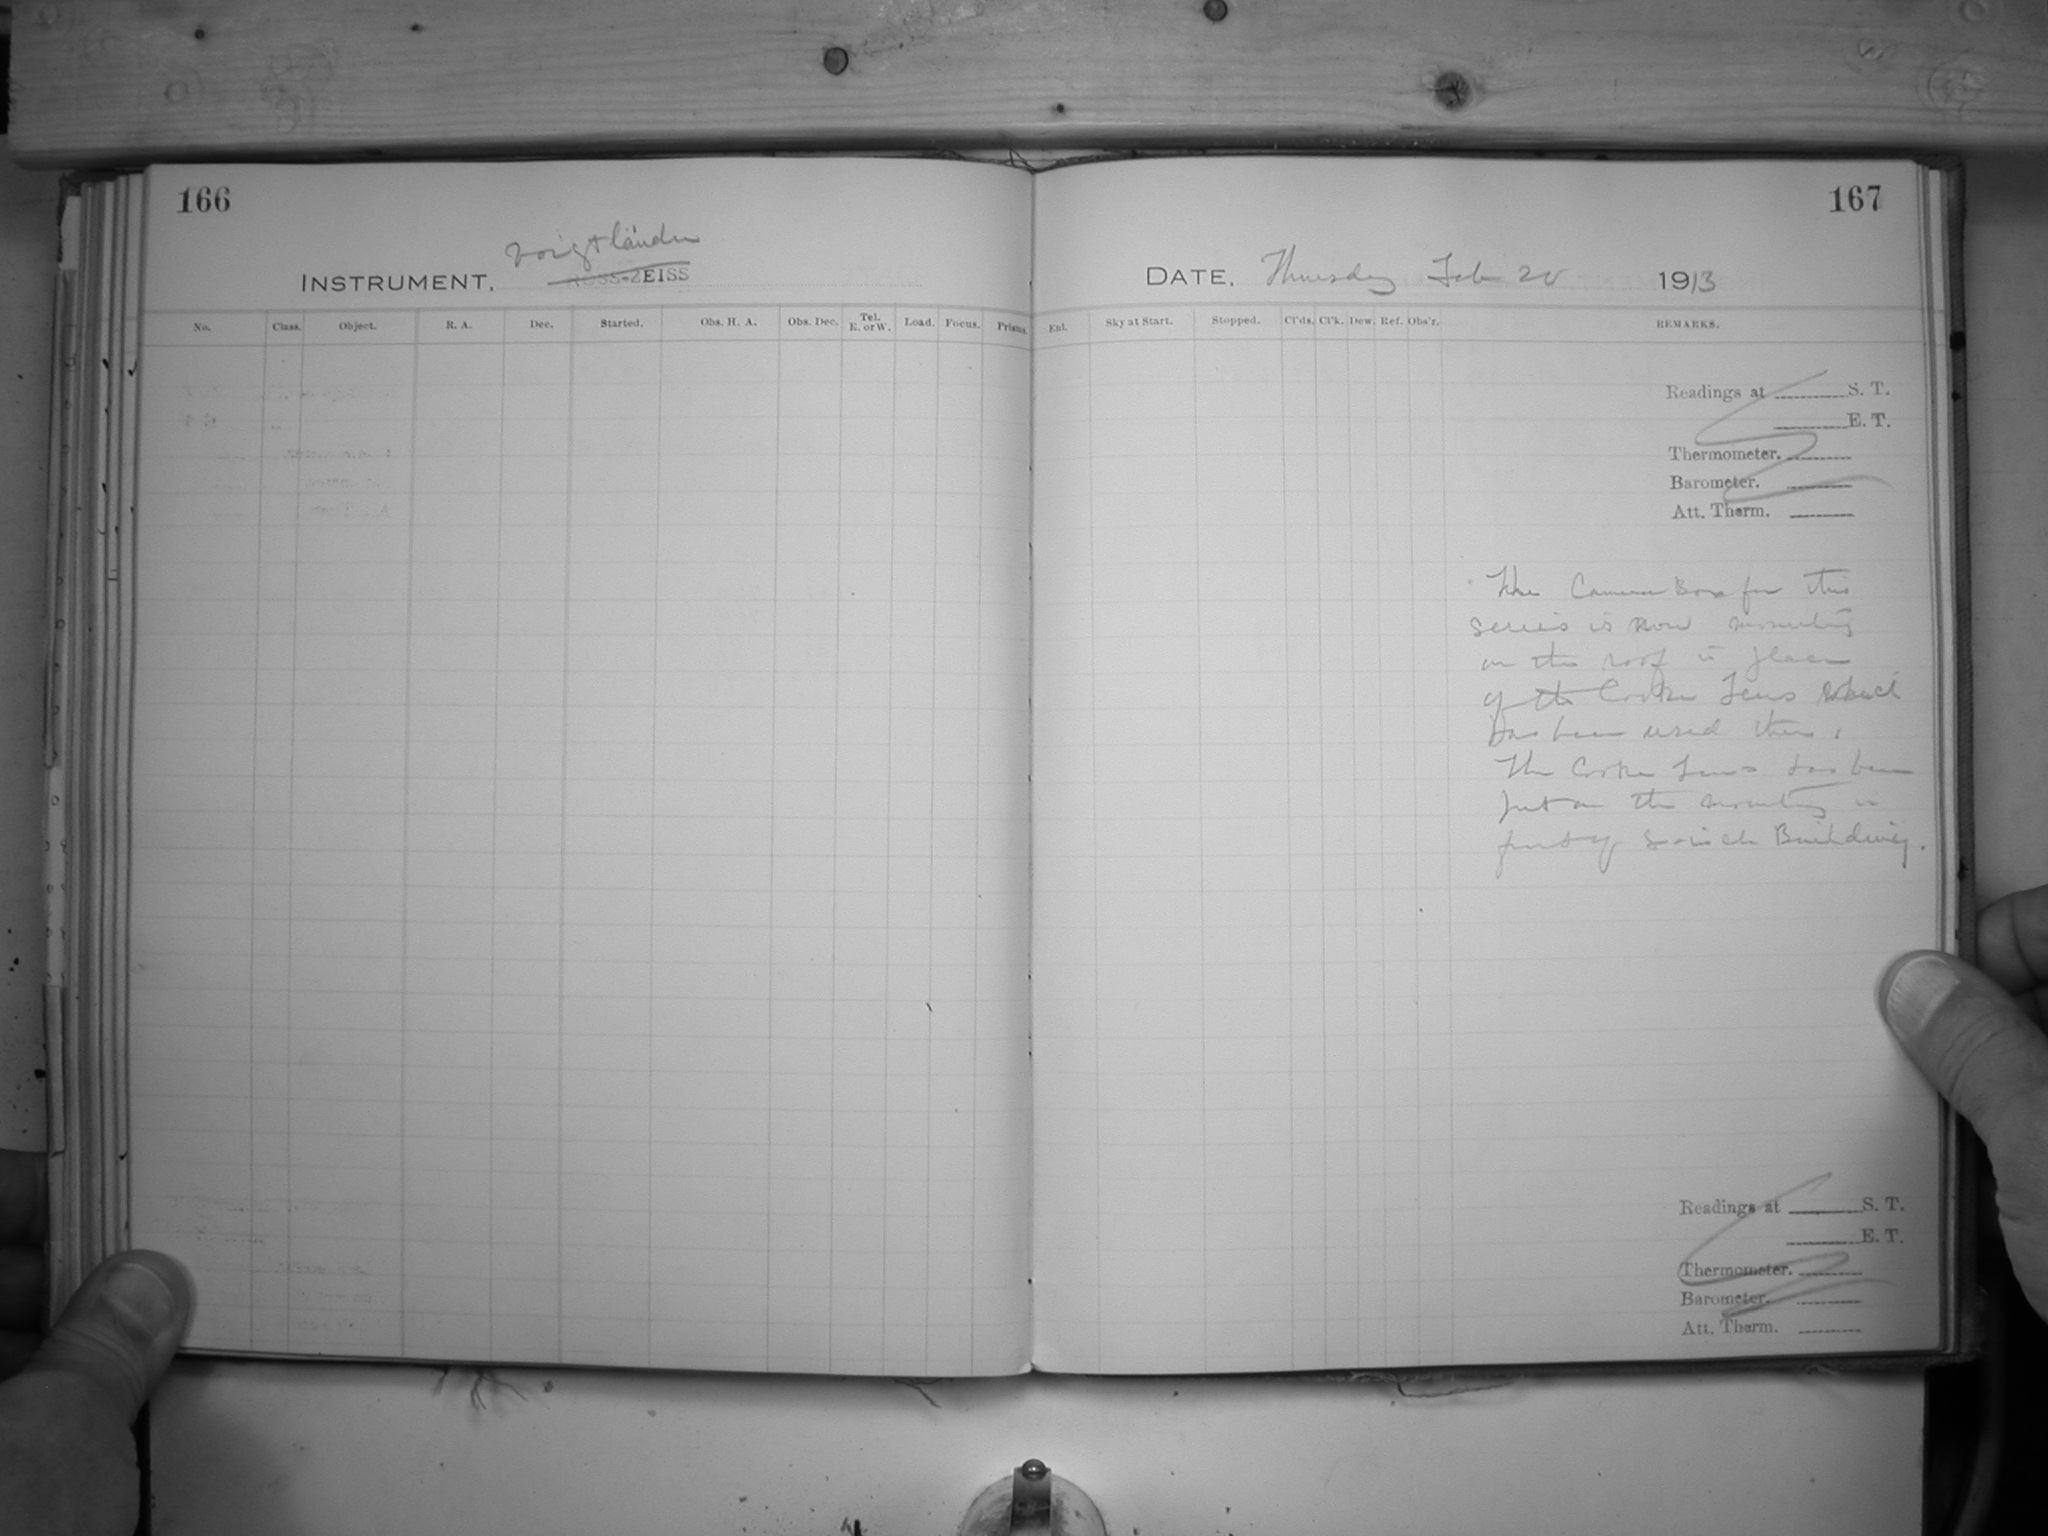 166
167
Voigtländer
INSTRUMENT, ROSS-ZEISS
DATE, Thursday Feb 20 1913
No. Class. Object. R. A. Dec. Started. Obs. H. A. Obs. Dec. Tel. E. or W. Load. Focus. Prisms. Enl. Sky at Start. Stopped. Cl'ds. Cl'k. Dew. Ref. Obs'r. REMARKS.
Readings at S. T.
E. T.
Thermometer.
Barometer.
Att. Therm.
The Camera Box for this
series is now mounting
on the roof in place
of the Cooke Lens which
has been used there.
The Cooke Lens has been
put on the mounting in
front of 8-inch Building.
Readings at S. T.
E. T.
Thermometer.
Barometer.
Att. Therm.